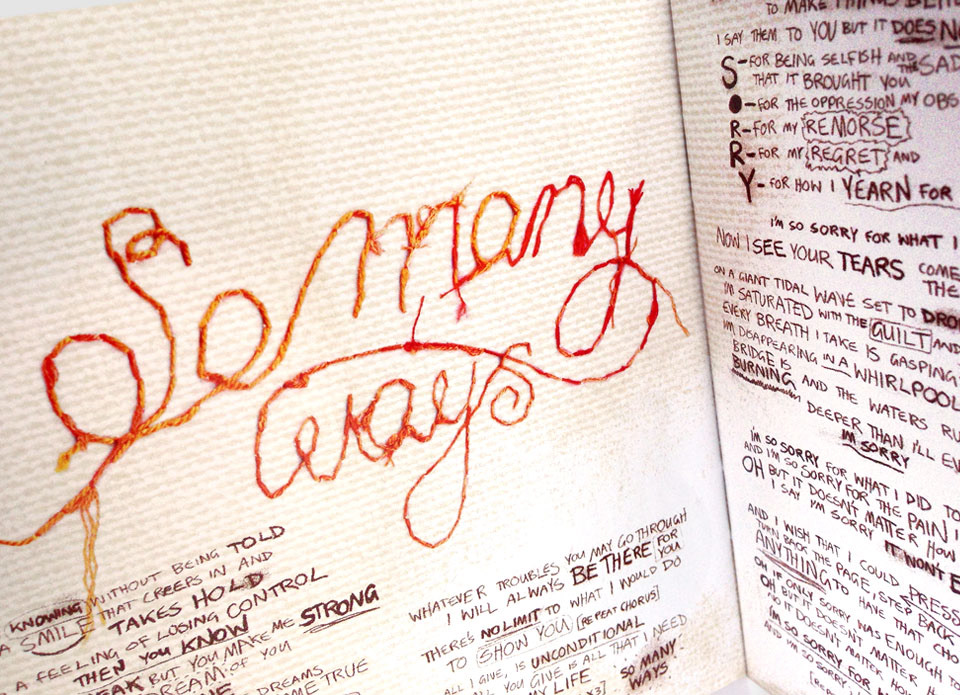 So many
ways
KNOWING WITHOUT BEING TOLD
A SMILE THAT CREEPS IN AND
TAKES HOLD
A FEELING OF LOSING CONTROL
THEN YOU KNOW
BUT YOU MAKE ME STRONG
DREAM OF YOU
DREAMS
COME TRUE
WHATEVER TROUBLES YOU MAY GO THROUGH
I WILL ALWAYS BE THERE FOR YOU
THERE'S NO LIMIT TO WHAT I WOULD DO
TO SHOW YOU [REPEAT CHORUS]
ALL I GIVE, IS UNCONDITIONAL
ALL YOU GIVE IS ALL THAT I NEED
MY LIFE
SO MANY
WAYS
TO MAKE THINGS
I SAY THEM TO YOU BUT IT DOES
S-FOR BEING SELFISH AND THE SAD
THAT IT BROUGHT YOU
O-FOR THE OPPRESSION MY OBS
R-FOR MY REMORSE
R-FOR MY REGRET AND
Y-FOR HOW I YEARN FOR
I'M SO SORRY FOR WHAT I
NOW I SEE YOUR TEARS COME
THE
ON A GIANT TIDAL WAVE SET TO
I'M SATURATED WITH THE GUILT AND
EVERY BREATH I TAKE IS GASPING
I'M DISAPPEARING IN A WHIRLPOOL
BRIDGE IS
BURNING AND THE WATERS RU
DEEPER THAN I'LL
I'M SORRY
I'M SO SORRY FOR WHAT I DID TO
AND I'M SO SORRY FOR THE PAIN I
OH BUT IT DOESN'T MATTER HOW
I SAY I'M SORRY IT WON'T
AND I WISH THAT I COULD PRESS
TURN BACK THE PAGE, STEP BACK
ANYTHING TO HAVE THAT
OH IF ONLY SORRY WAS ENOUGH
OH BUT IT DOESN'T MATTER
AND IT DOESN'T MATTER
I'M SO SORRY FOR
AND I'M SO SORRY